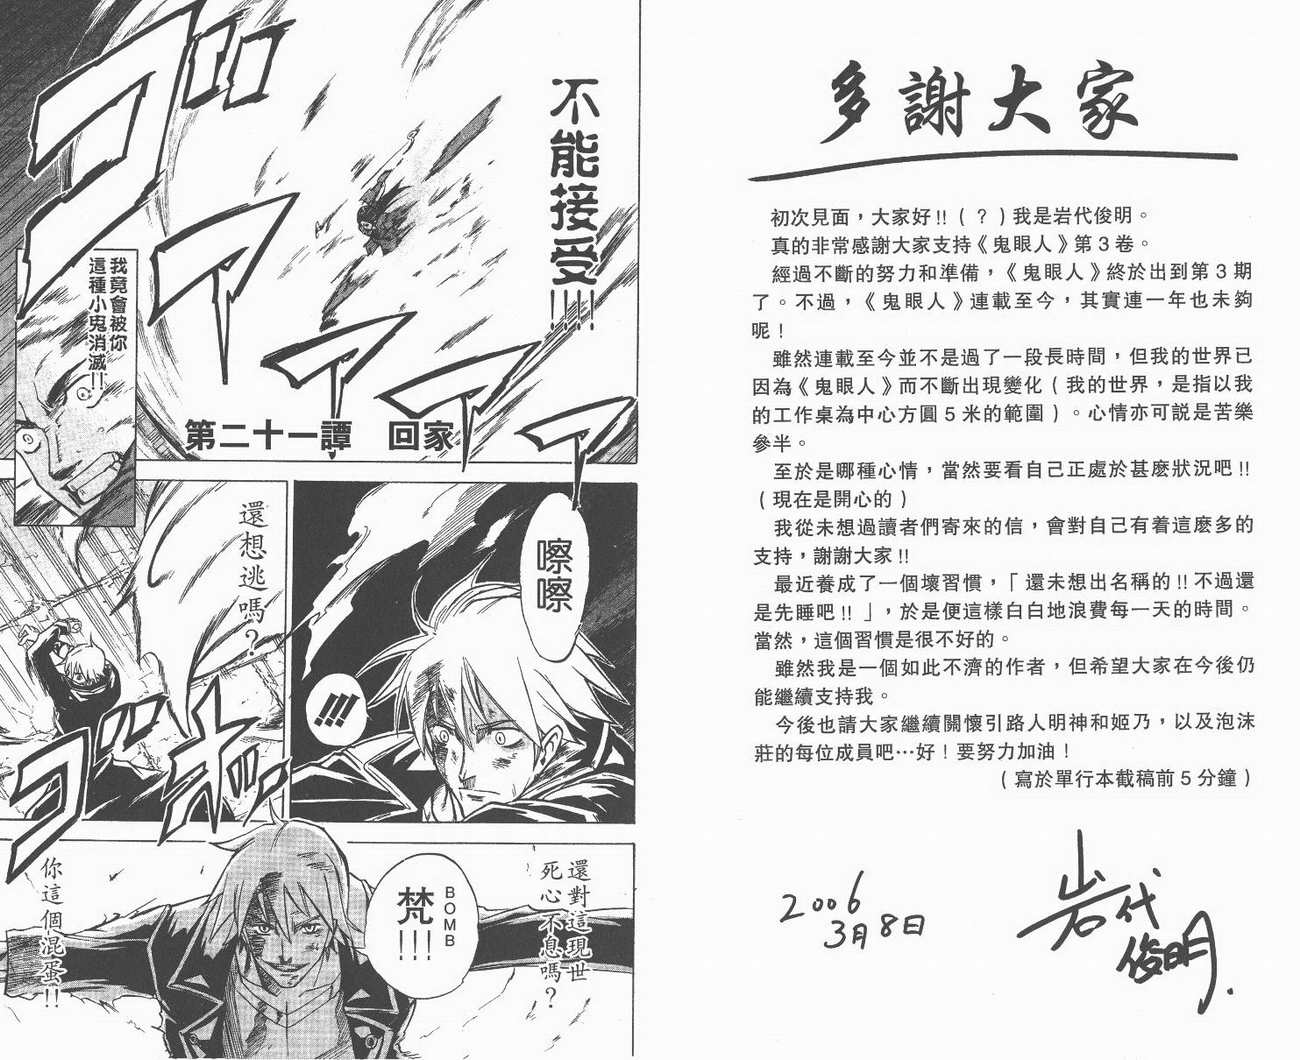 多謝大家
初次見面，大家好!!(？)我是岩代俊明。
真的非常感謝大家支持《鬼眼人》第3卷。
經過不斷的努力和準備，《鬼眼人》終於出到第3期
了。不過，《鬼眼人》連載至今，其實連一年也未夠
呢！
雖然連載至今並不是過了一段長時間，但我的世界已
因為《鬼眼人》而不斷出現變化(我的世界，是指以我
的工作桌為中心方圓5米的範圍)。心情亦可説是苦樂
參半。
至於是哪種心情，當然要看自己正處於甚麽狀況吧!!
(現在是開心的)
我從未想過讀者們寄來的信，會對自己有着這麽多的
支持，謝謝大家!!
最近養成了一個壞習慣，「還未想出名稱的!!不過還
是先睡吧!!」，於是便這樣白白地浪費每一天的時間。
當然，這個習慣是很不好的。
雖然我是一個如此不濟的作者，但希望大家在今後仍
能繼續支持我。
今後也請大家繼續關懷引路人明神和姬乃，以及泡沫
莊的每位成員吧…好！要努力加油！
(寫於單行本截稿前5分鐘)
2006
3月8日
岩代
俊明.
不能接受!!!!
ゴァァァァ
我竟會被你
這種小鬼消滅!!
第二十一譚　回家
嚓嚓
!!!
還想逃嗎？
ゴゴ
還對這現世
死心不息嗎？
BOMB
梵!!!
你這個混蛋!!